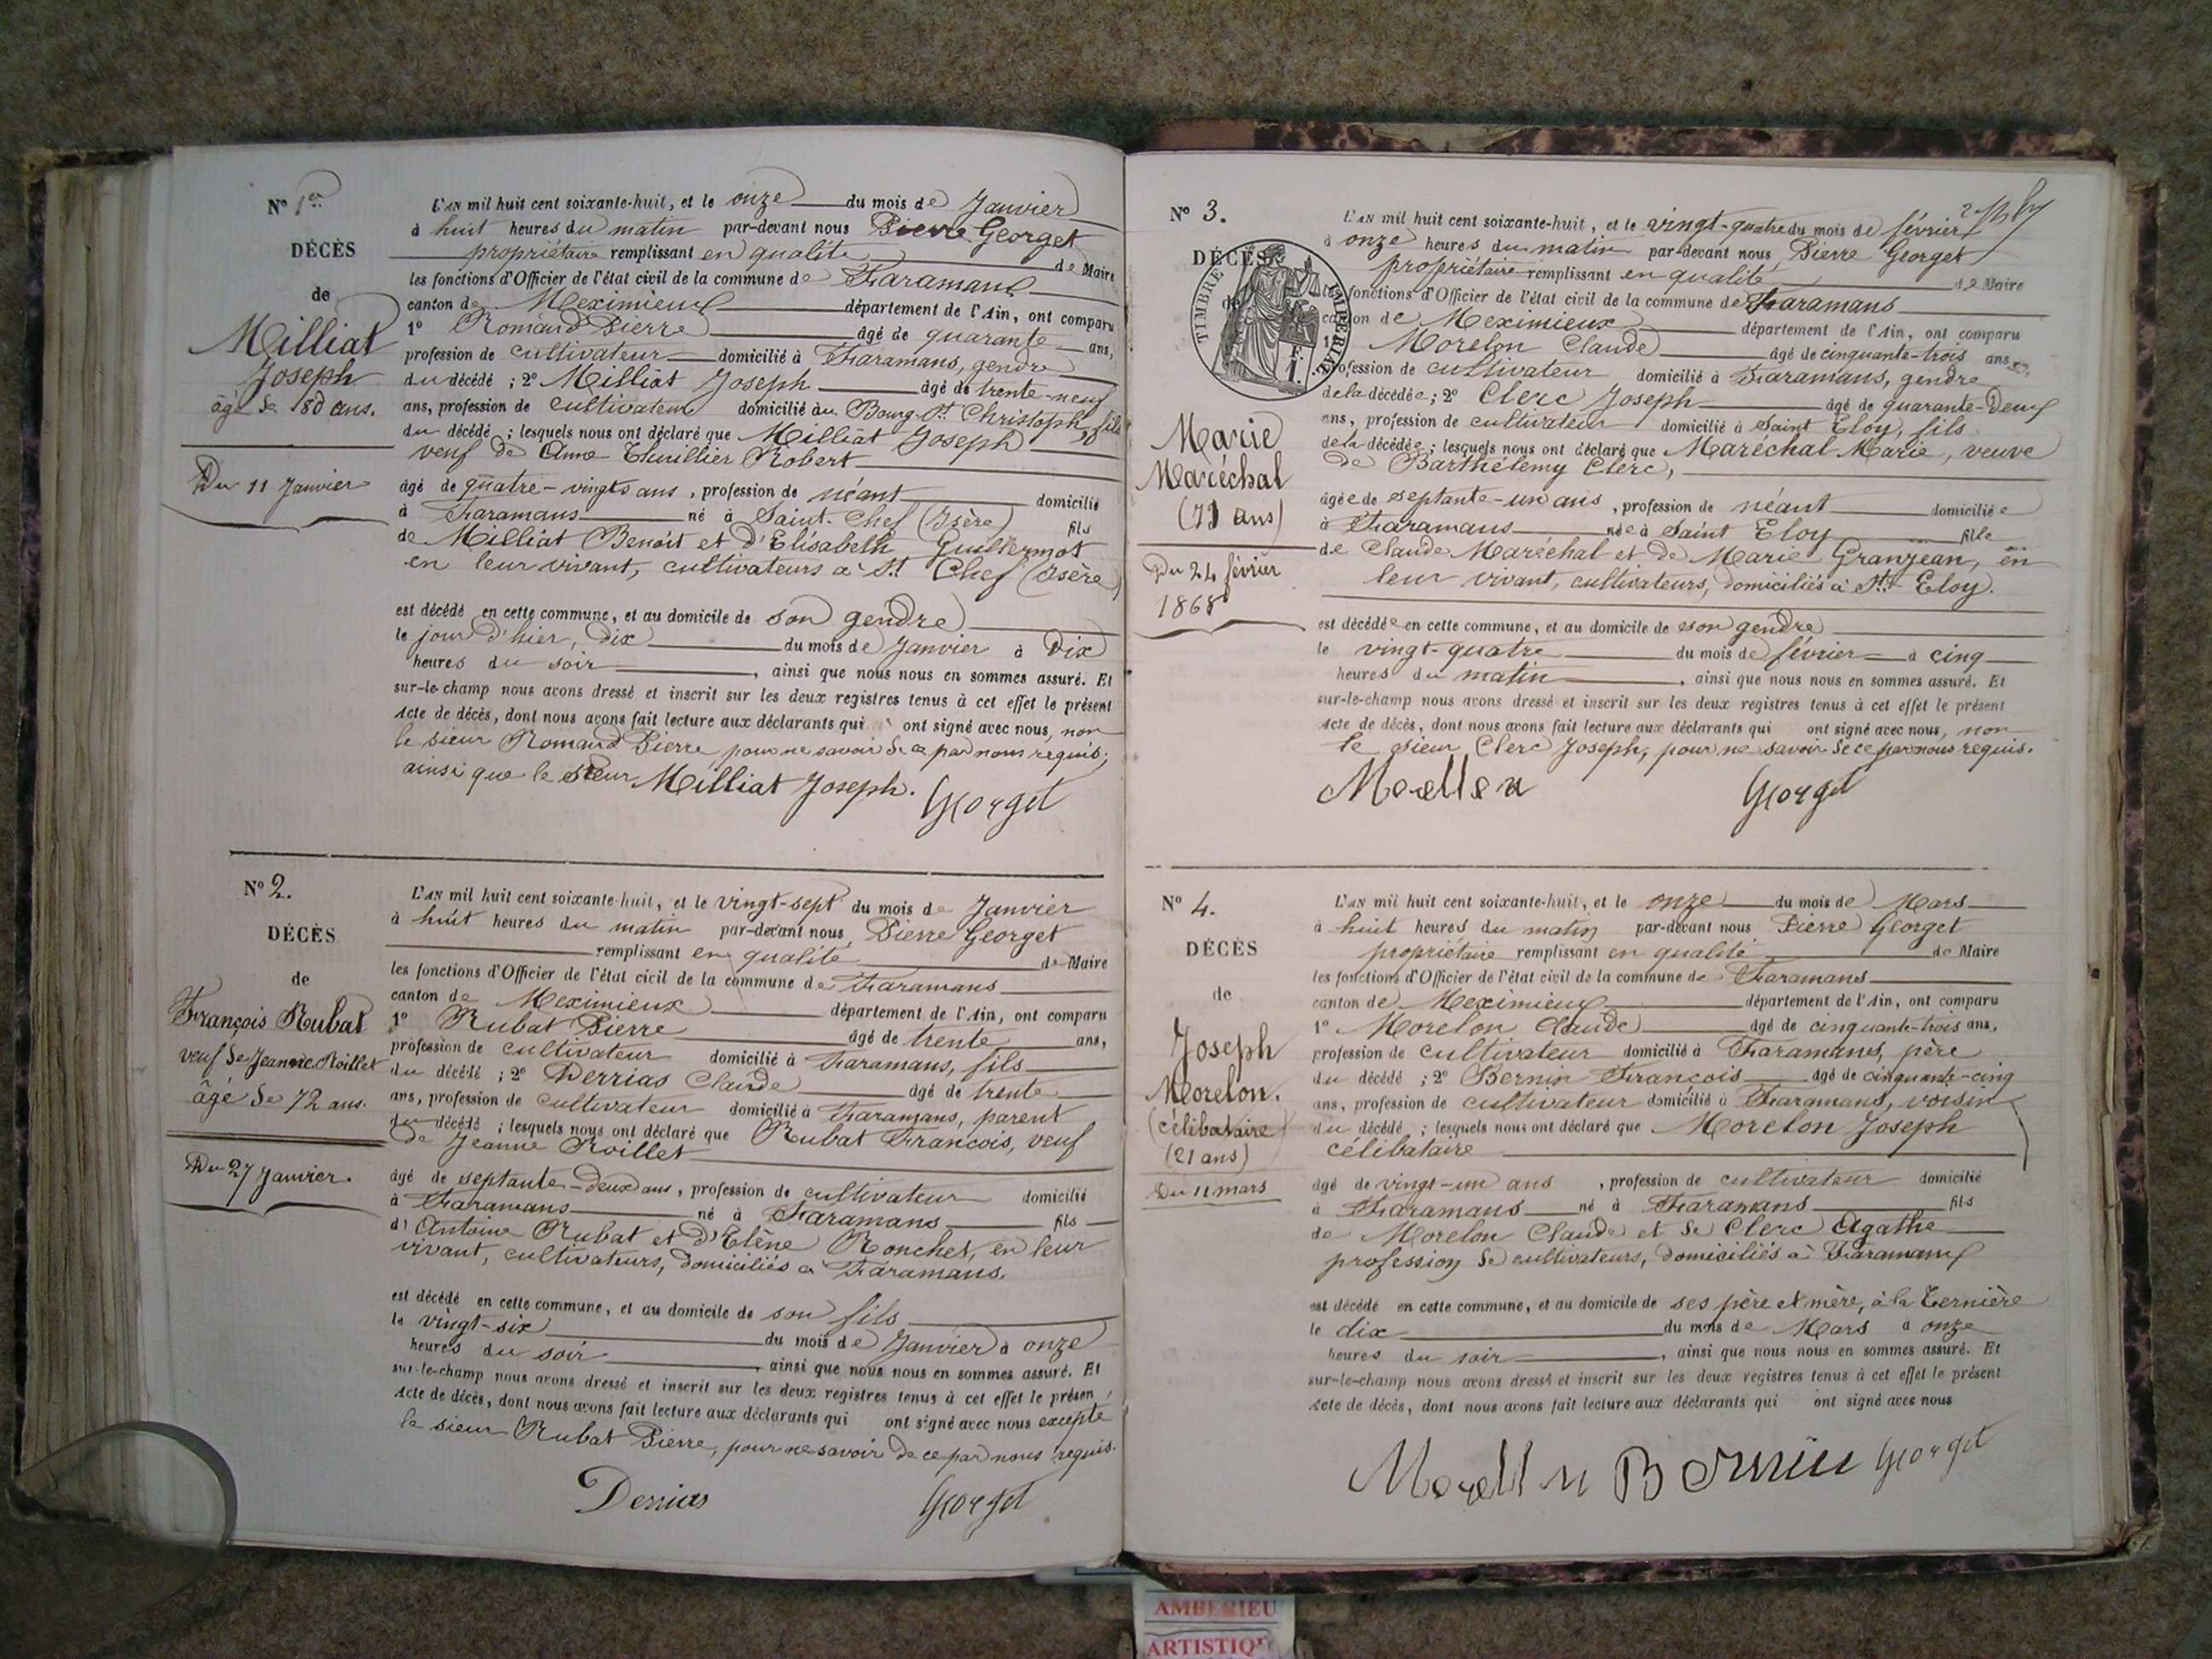 N° 1er
DÉCÈS
de
Milliat
Joseph
âgé de 80 ans.
Du 11 Janvier
L'AN mil huit cent soixante-huit, et le onze du mois de Janvier
à huit heures du matin par-devant nous Pierre Georget
propriétaire remplissant en qualité de Maire
les fonctions d'Officier de l'état civil de la commune de Faramans
canton de Meximieux département de l'Ain, ont comparu
1° Romand Pierre âgé de quarante ans,
profession de cultivateur domicilié à Faramans, gendre
du décédé ; 2° Milliat Joseph âgé de trente-neuf
ans, profession de cultivateur domicilié au Bourg-St Christoph, fils
du décédé ; lesquels nous ont déclaré que Milliat Joseph
veuf de Anne Thuillier Robert
âgé de quatre-vingts ans, profession de néant domicilié
à Faramans né à Saint-Chef (Isère) fils
de Milliat Benoît et d'Elisabeth Guillermot
en leur vivant, cultivateurs à St Chef (Isère)
est décédé en cette commune, et au domicile de son gendre
le jour d'hier, dix du mois de Janvier à Dix
heures du soir, ainsi que nous nous en sommes assuré. Et
sur-le-champ nous avons dressé et inscrit sur les deux registres tenus à cet effet le présent
Acte de décès, dont nous avons fait lecture aux déclarants qui ont signé avec nous, non
le sieur Romand Pierre pour ne savoir de ce par nous requis;
ainsi que le sieur Milliat Joseph. Georget
N° 2.
DÉCÈS
de
François Rubat
veuf de Jeanne Roillet
âgé de 72 ans.
Du 27 Janvier.
L'AN mil huit cent soixante-huit, et le vingt-sept du mois de Janvier
à huit heures du matin par-devant nous Pierre Georget
remplissant en qualité de Maire
les fonctions d'Officier de l'état civil de la commune de Faramans
canton de Meximieux département de l'Ain, ont comparu
1° Rubat Pierre âgé de trente ans,
profession de cultivateur domicilié à Faramans, fils
du décédé ; 2° Derrias Claude âgé de trente
ans, profession de cultivateur domicilié à Faramans, parent
du décédé ; lesquels nous ont déclaré que Rubat François, veuf
de Jeanne Roillet
âgé de septante-deux ans, profession de cultivateur domicilié
à Faramans né à Faramans fils
d'Antoine Rubat et d'Elène Ronchet, en leur
vivant, cultivateurs, domiciliés à Faramans.
est décédé en cette commune, et au domicile de son fils
le vingt-six du mois de Janvier à onze
heures du soir, ainsi que nous nous en sommes assuré. Et
sur-le-champ nous avons dressé et inscrit sur les deux registres tenus à cet effet le présen
Acte de décès, dont nous avons fait lecture aux déclarants qui ont signé avec nous excepté
le sieur Rubat Pierre, pour ne savoir de ce par nous requis.
Derrias Georget
N° 3.
DÉCÈS
de
TIMBRE IMPÉRIAL
F.
1.
Marie
Maréchal
(71 ans)
Du 24 février
1868
L'AN mil huit cent soixante-huit, et le vingt-quatre du mois de février
à onze heures du matin par-devant nous Pierre Georget
propriétaire remplissant en qualité de Maire
les fonctions d'Officier de l'état civil de la commune de Faramans
canton de Meximieux département de l'Ain, ont comparu
1° Morelon Claude âgé de cinquante-trois ans
profession de cultivateur domicilié à Faramans, gendre
de la décédée ; 2° Clerc Joseph âgé de quarante-deux
ans, profession de cultivateur domicilié à Saint Eloy, fils
de la décédée ; lesquels nous ont déclaré que Maréchal Marie, veuve
de Barthélemy Clerc,
âgée de septante-un ans, profession de néant domiciliée
à Faramans née à Saint Eloy fille
de Claude Maréchal et de Marie Granjean, en
leur vivant, cultivateurs, domiciliés à St Eloy.
est décédée en cette commune, et au domicile de son gendre
le vingt-quatre du mois de février à cinq
heures du matin, ainsi que nous nous en sommes assuré. Et
sur-le-champ nous avons dressé et inscrit sur les deux registres tenus à cet effet le présent
Acte de décès, dont nous avons fait lecture aux déclarants qui ont signé avec nous, non
le sieur Clerc Joseph, pour ne savoir de ce par nous requis.
Morellon Georget
N° 4.
DÉCÈS
de
Joseph
Morelon.
(célibataire)
(21 ans)
Du 11 mars
L'AN mil huit cent soixante-huit, et le onze du mois de Mars
à huit heures du matin par-devant nous Pierre Georget
propriétaire remplissant en qualité de Maire
les fonctions d'Officier de l'état civil de la commune de Faramans
canton de Meximieux département de l'Ain, ont comparu
1° Morelon Claude âgé de cinquante-trois ans,
profession de cultivateur domicilié à Faramans, père
du décédé ; 2° Bernin François âgé de cinquante-cinq
ans, profession de cultivateur domicilié à Faramans, voisin
du décédé ; lesquels nous ont déclaré que Morelon Joseph
célibataire
âgé de vingt-un ans, profession de cultivateur domicilié
à Faramans né à Faramans fils
de Morelon Claude et de Clerc Agathe
profession de cultivateurs, domiciliés à Faramans
est décédé en cette commune, et au domicile de ses père et mère, à la Ternière
le dix du mois de Mars à onze
heures du soir, ainsi que nous nous en sommes assuré. Et
sur-le-champ nous avons dressé et inscrit sur les deux registres tenus à cet effet le présent
Acte de décès, dont nous avons fait lecture aux déclarants qui ont signé avec nous
Morellon Bernin Georget
AMBERIEU
ARTISTIQ